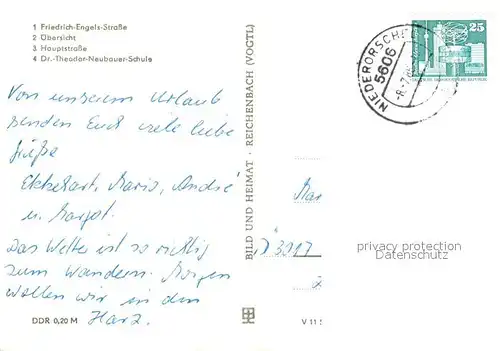 1 Friedrich-Engels-Straße
2 Übersicht
3 Hauptstraße
4 Dr.-Theodor-Neubauer-Schule
Von unserem Urlaub
senden Euch viele liebe
Grüße
Ekkehart, Maria, André
u. Margot.
Das Wetter ist so richtig
zum Wandern. Morgen
wollen wir in den
Harz.
DDR 0,20 M
BILD UND HEIMAT · REICHENBACH (VOGTL)
V 11 5
NIEDERORSCHEL
5606
25
D 3917
privacy protection
Datenschutz